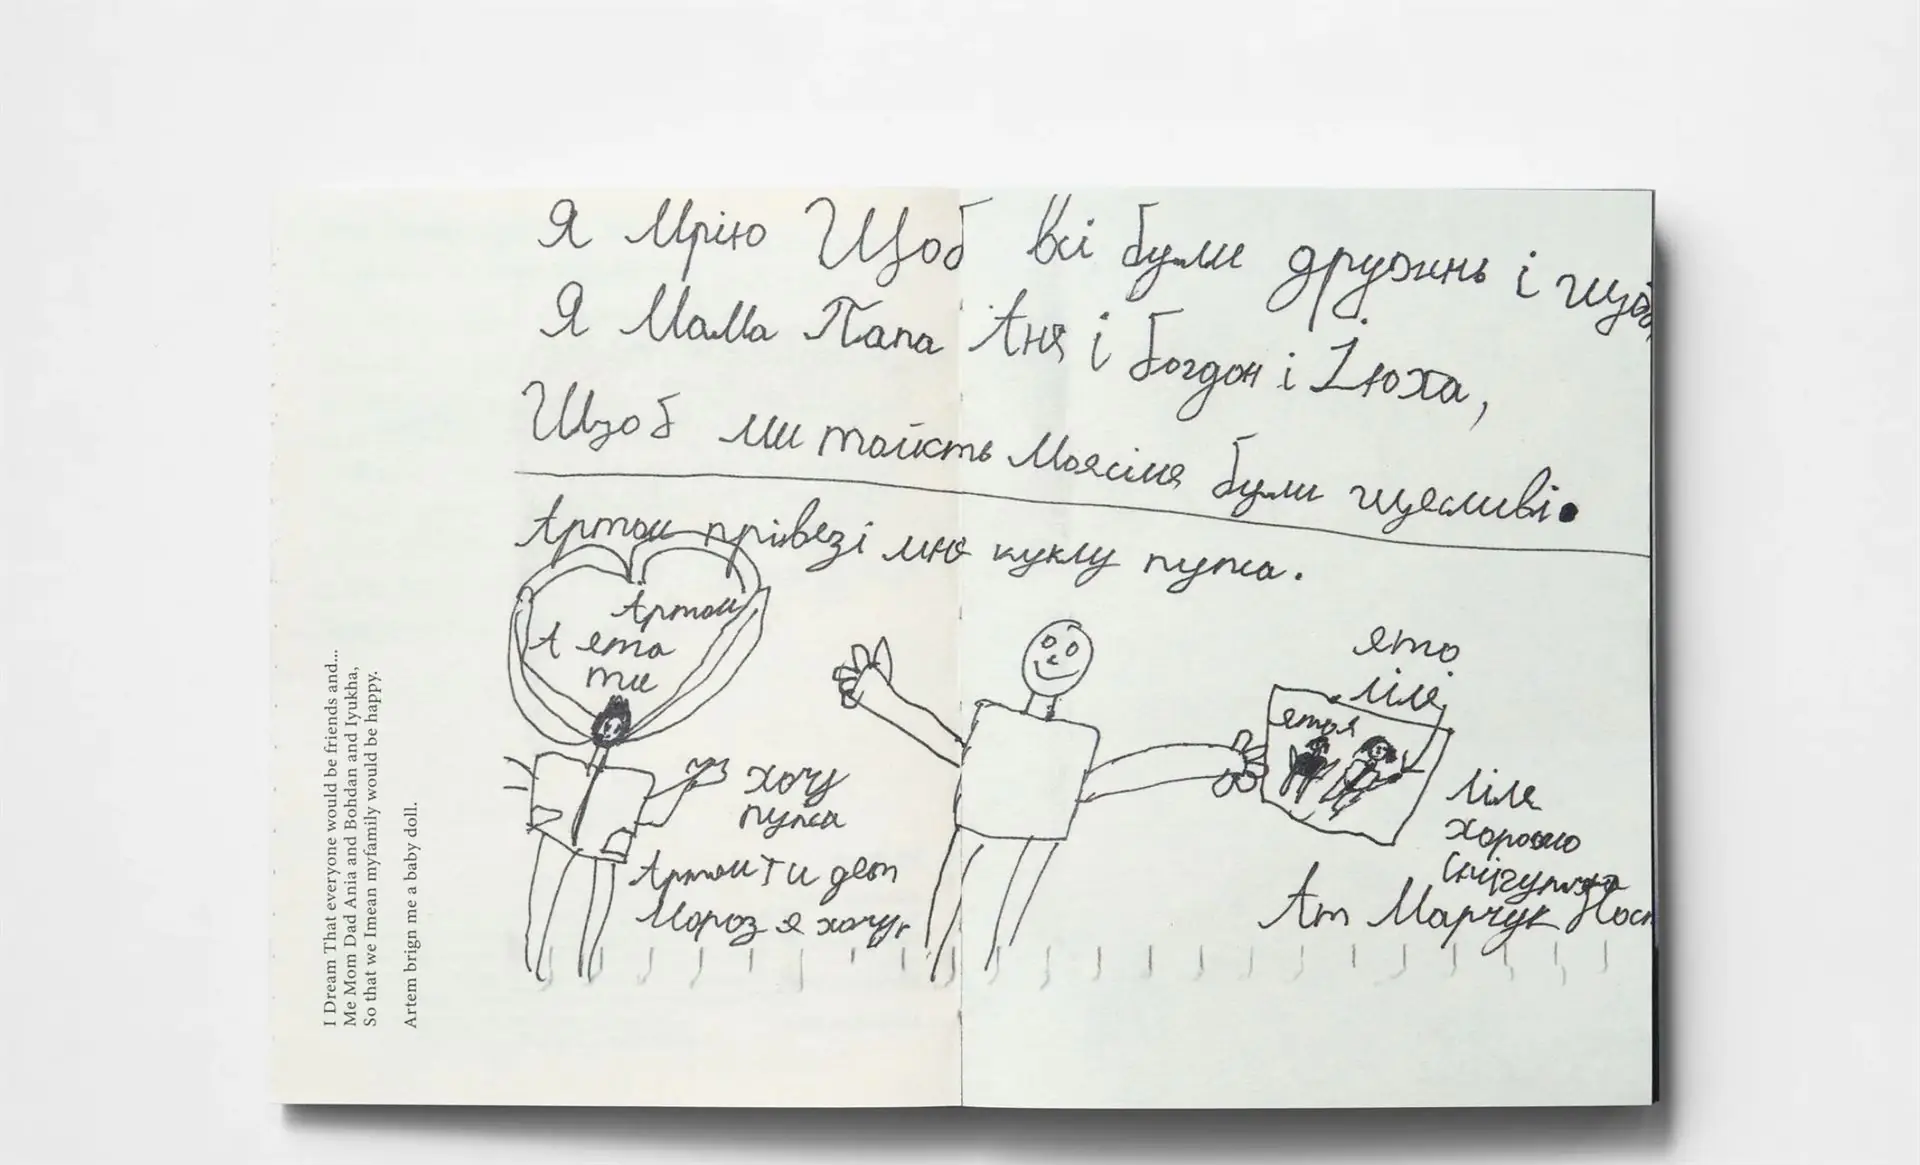 Я Мрію Щоб Всі були дружнь і щоб
Я Мама Папа Аня і богдон і Iюха,
Щоб ми тоїсть Моясімя були щесливі.
Артом прівезі мню куклу пупса.
Артом
А ето
ти
хочу
пупса
Артом Ти дет
Мороз я хочу,
ято
ліля
етоя
Ліля
хорошо
Снігурочка
Ат Марчук Наст
I Dream That everyone would be friends and...
Me Mom Dad Ania and Bohdan and Iyukha,
So that we Imean myfamily would be happy.
Artem brign me a baby doll.